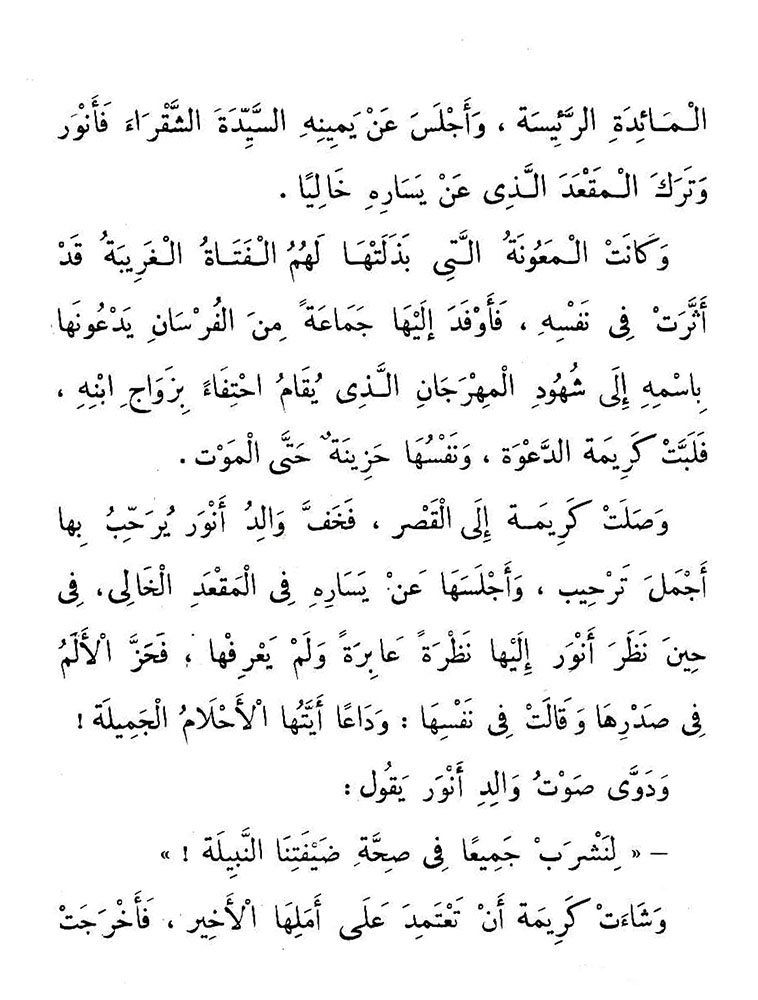 الْمَائِدَةِ الرَّئِيسَة ، وَأَجْلَسَ عَنْ يَمِينِهِ السَّيِّدَةَ الشَّقْرَاءَ فَأَنْوَر
وَتَرَكَ الْمَقْعَدَ الَّذِى عَنْ يَسَارِهِ خَالِيًا .
وَكَانَتْ الْمَعُونَةُ الَّتِى بَذَلَتْهَا لَهُمُ الْفَتَاةُ الْغَرِيبَةُ قَدْ
أَثَّرَتْ فِى نَفْسِهِ ، فَأَوْفَدَ إِلَيْهَا جَمَاعَةً مِنَ الْفُرْسَانِ يَدْعُونَها
بِاسْمِهِ إِلَى شُهُودِ الْمِهْرَجَانِ الَّذِى يُقَامُ احْتِفَاءً بِزَوَاجِ ابْنِهِ ،
فَلَبَّتْ كَرِيمَة الدَّعْوَة ، وَنَفْسُهَا حَزِينَةٌ حَتَّى الْمَوْت .
وَصَلَتْ كَرِيمَة إِلَى الْقَصْر ، فَخَفَّ وَالِدُ أَنْوَر يُرَحِّبُ بِها
أَجْمَلَ تَرْحِيب ، وَأَجْلَسَهَا عَنْ يَسَارِهِ فِى الْمَقْعَدِ الْخَالِى، فِى
حِينَ نَظَرَ أَنْوَر إِلَيْها نَظْرَةً عَابِرَةً وَلَمْ يَعْرِفْها ، فَحَزَّ الْأَلَمُ
فِى صَدْرِهَا وَقَالَتْ فِى نَفْسِهَا : وَدَاعًا أَيَّتُها الْأَحْلَامُ الْجَمِيلَة !
وَدَوَّى صَوْتُ وَالِدِ أَنْوَر يَقُول :
– « لِنَشْرَبْ جَمِيعًا فِى صِحَّةِ ضَيْفَتِنَا النَّبِيلَة ! »
وَشَاءَتْ كَرِيمَة أَنْ تَعْتَمِدَ عَلَى أَمَلِهَا الْأَخِير ، فَأَخْرَجَتْ